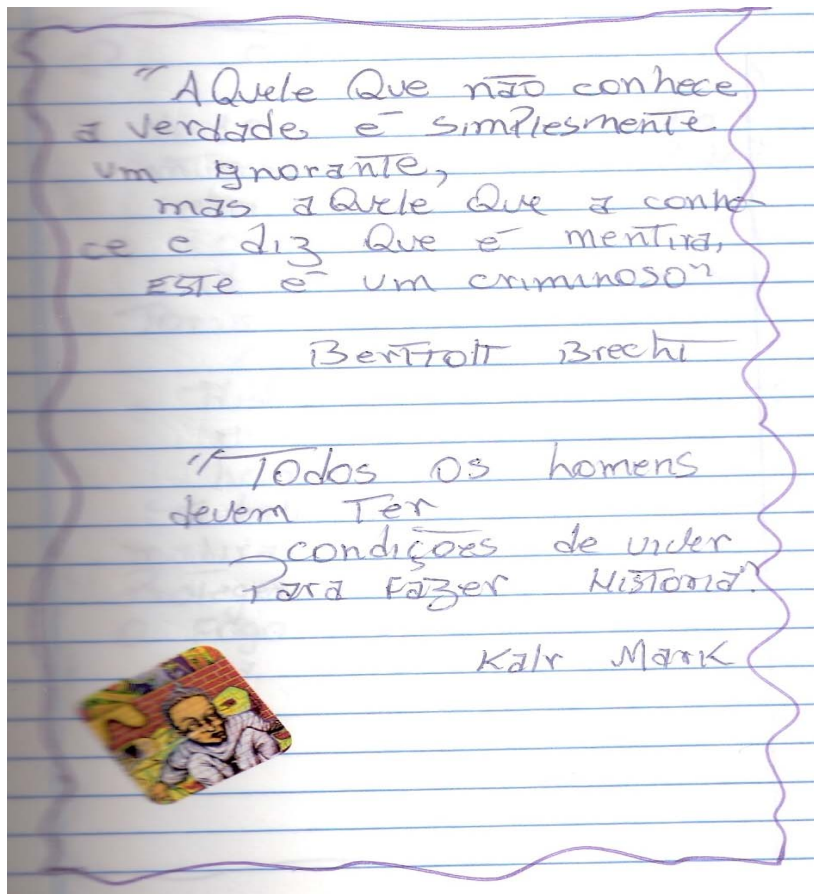 "AQuele Que não conhece
a verdade, é simplesmente
um ignorante,
mas aQuele Que a conhe-
ce e diz Que é mentira,
ESTE é um criminoso"
Bertrolt Brecht
"Todos os homens
devem Ter
condições de vider
Para Fazer Historia"
Kalr Mark